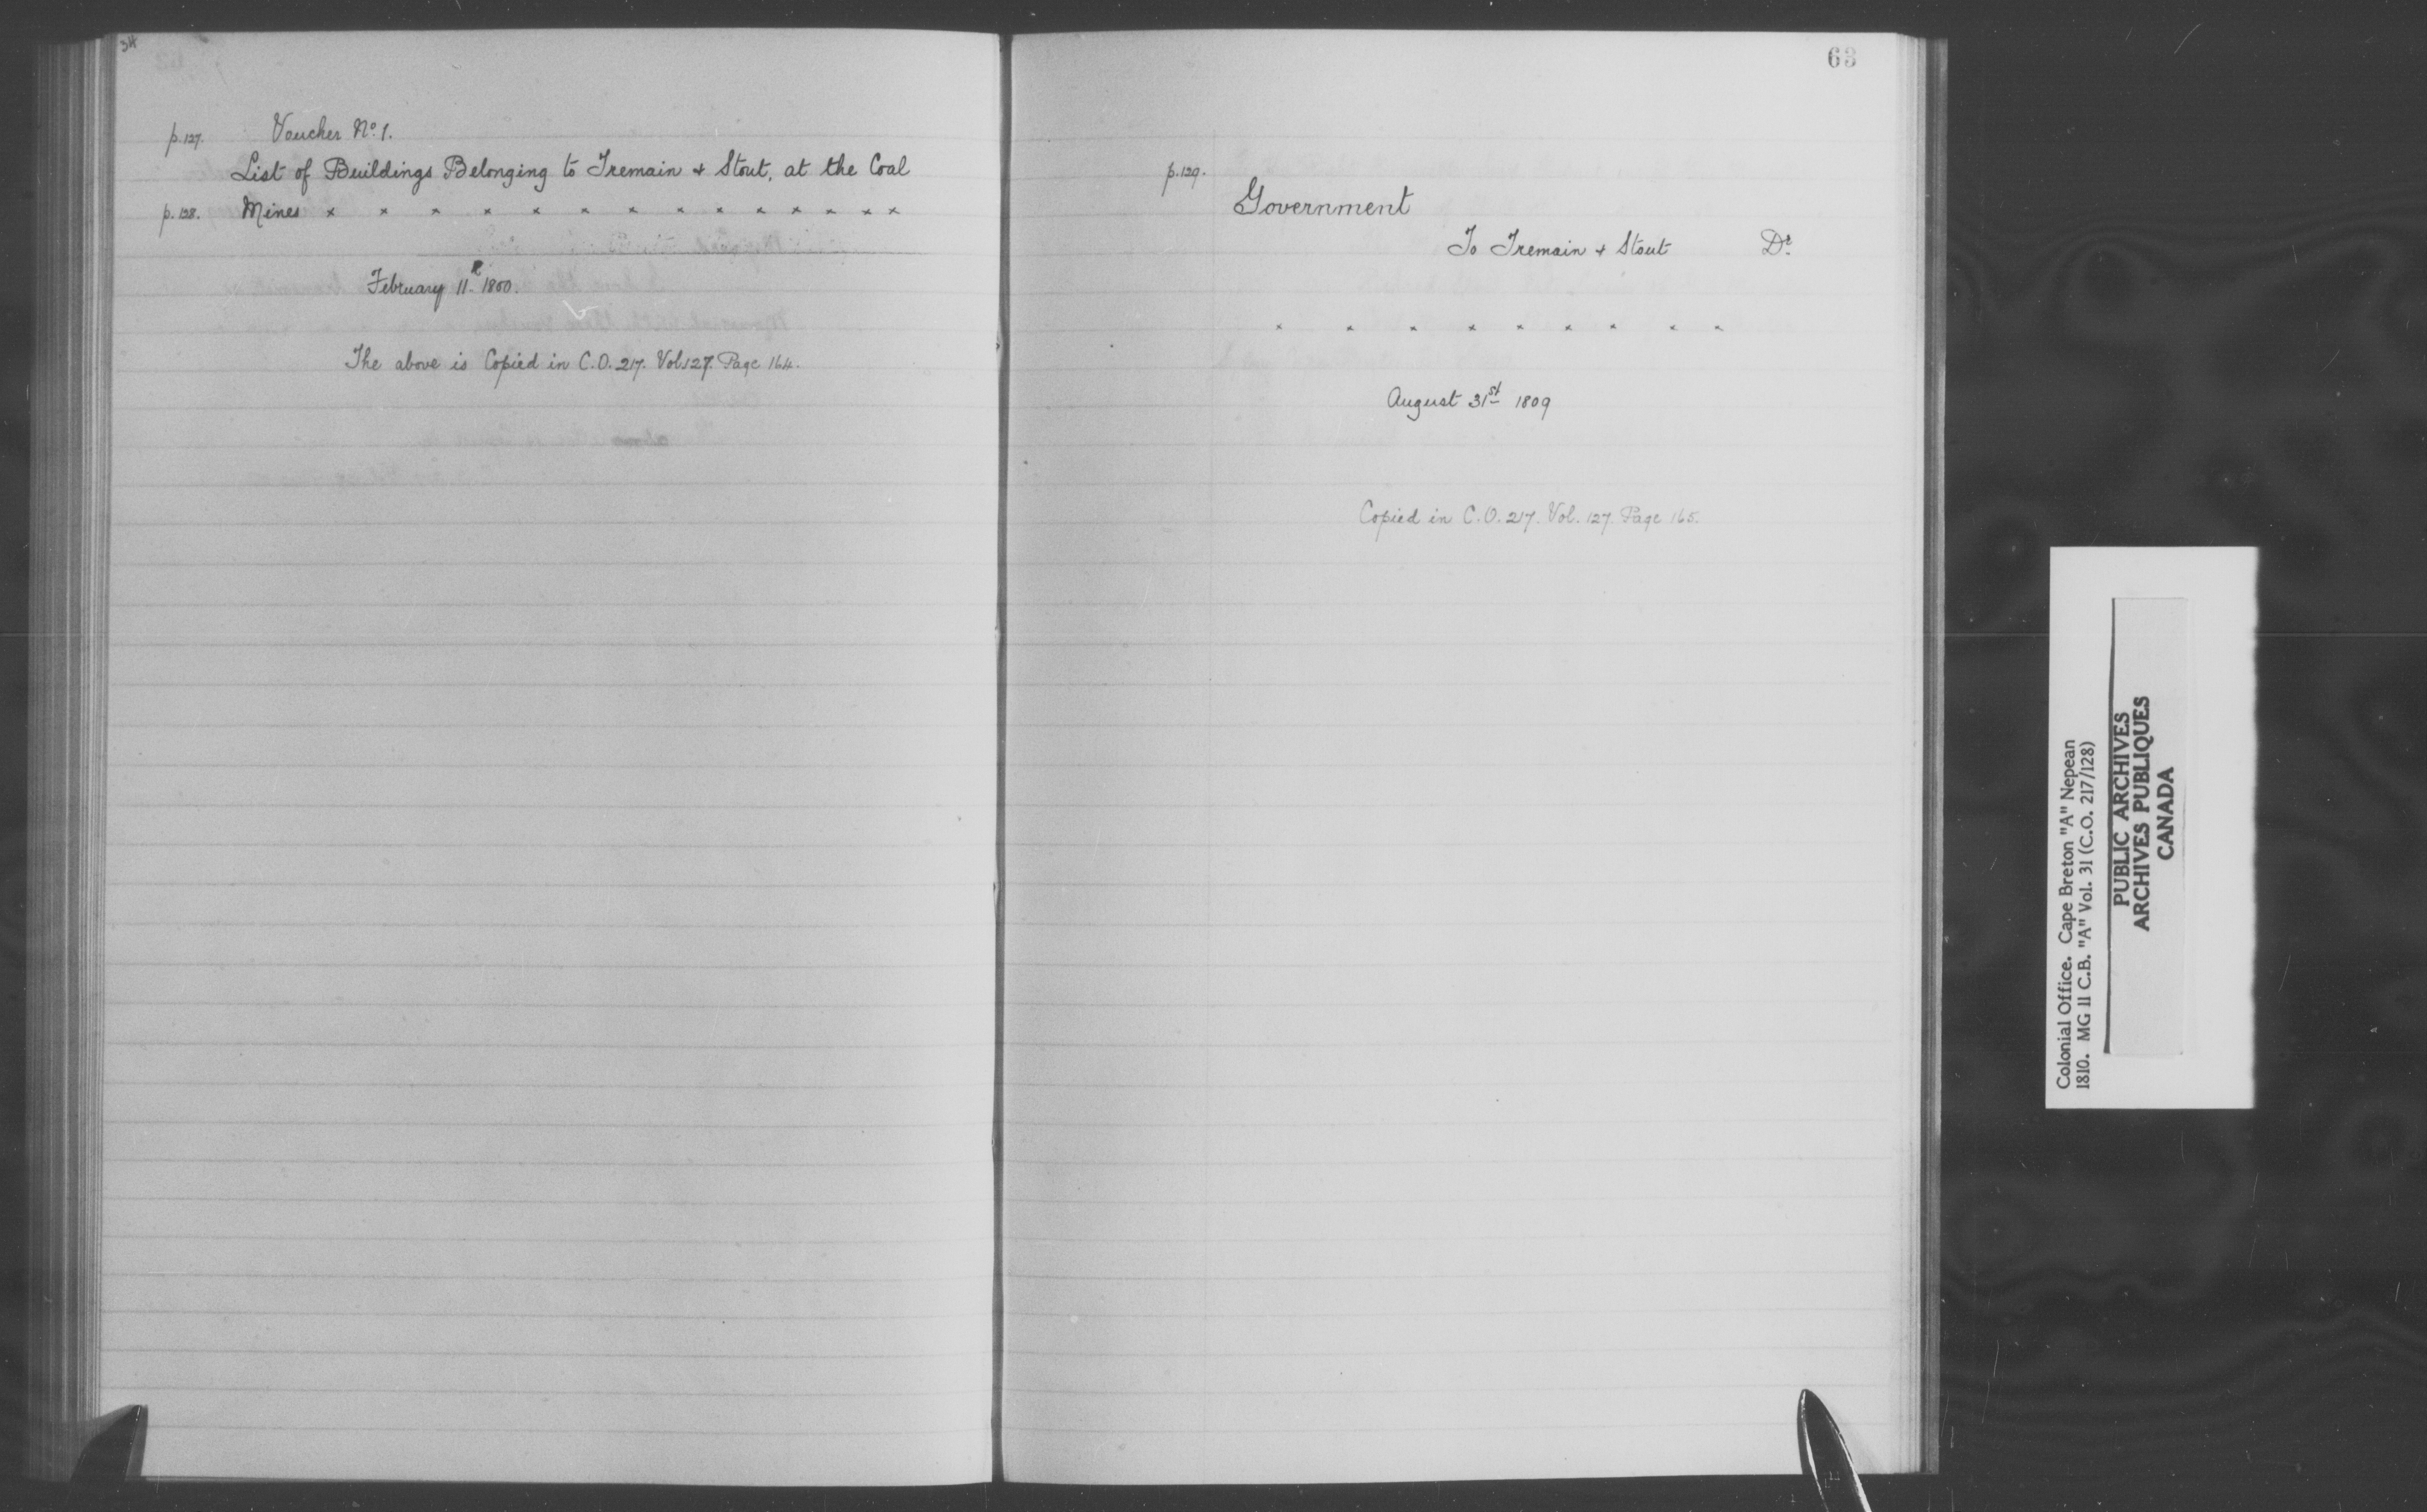 34
p.127. Voucher No. 1.
List of Buildings Belonging to Tremain + Stout, at the Coal
p.128. Mines x x x x x x x x x x x x x x
February 11th 1800.
The above is Copied in C.O. 217. Vol 127. Page 164.
63
p.129.
Government
To Tremain + Stout Dr.
x x x x x x x x x
August 31st 1809
Copied in C.O. 217. Vol. 127. Page 165.
Colonial Office. Cape Breton "A" Nepean
1810. MG 11 C.B. "A" Vol. 31 (C.O. 217/128)
PUBLIC ARCHIVES
ARCHIVES PUBLIQUES
CANADA